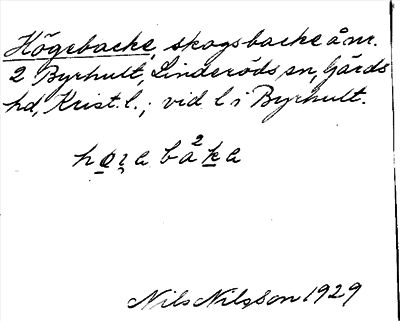 Högebacke, skogsbacke å nr.
2 Byrhult, Linderöds sn, Gärds
hd, Krist. l.; vid l. i Byrhult.
Nils Nilsson 1929